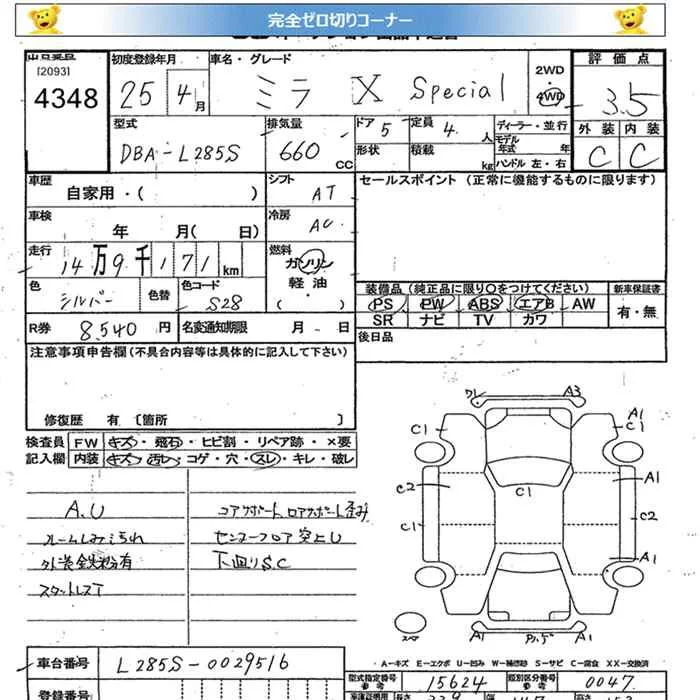 完全ゼロ切りコーナー
[2093]
4348
初度登録年月
25 4月
車名・グレード
ミラ X Special
2WD
4WD
評価点
3.5
外装 内装
C C
型式
DBA-L285S
排気量
660 CC
ドア 5
形状
定員 4 人
積載 kg
ディーラー・並行
モデル年式 年
ハンドル 左・右
車歴
自家用・( )
シフト
AT
セールスポイント (正常に機能するものに限ります)
車検
年 月( 日)
冷房
AC
走行
14万9千171km
燃料
ガソリン
軽油
( )
色
シルバー
色替
色コード
S28
装備品 (純正品に限り○をつけてください)
新車保証書
PS PW ABS エアB AW
SR ナビ TV カワ
有・無
R券 8.540円
名変通知期限 月 日
後日品
注意事項申告欄(不具合内容等は具体的に記入して下さい)
修復歴 有 〔箇所 〕
検査員記入欄
FW キズ・飛石・ヒビ割・リペア跡・×要
内装 キズ・汚レ・コゲ・穴・スレ・キレ・破レ
A.U
ルームしみ汚れ
外装鉄粉有
スタットレスT
コアサポート、ロアサポート歪み
センターフロア突上U
下廻りS.C
ワレ A3
C1
A1
C1
C2
C1
C1
A1
C2
A1
スペア
A1
A1
車台番号 L285S-0029516
登録番号
A-キズ E-エクボ U-凹み W-補修跡 S-サビ C-腐食 XX-交換済
型式指定番号 参考 15624
類別区分番号 参考 0047
長さ